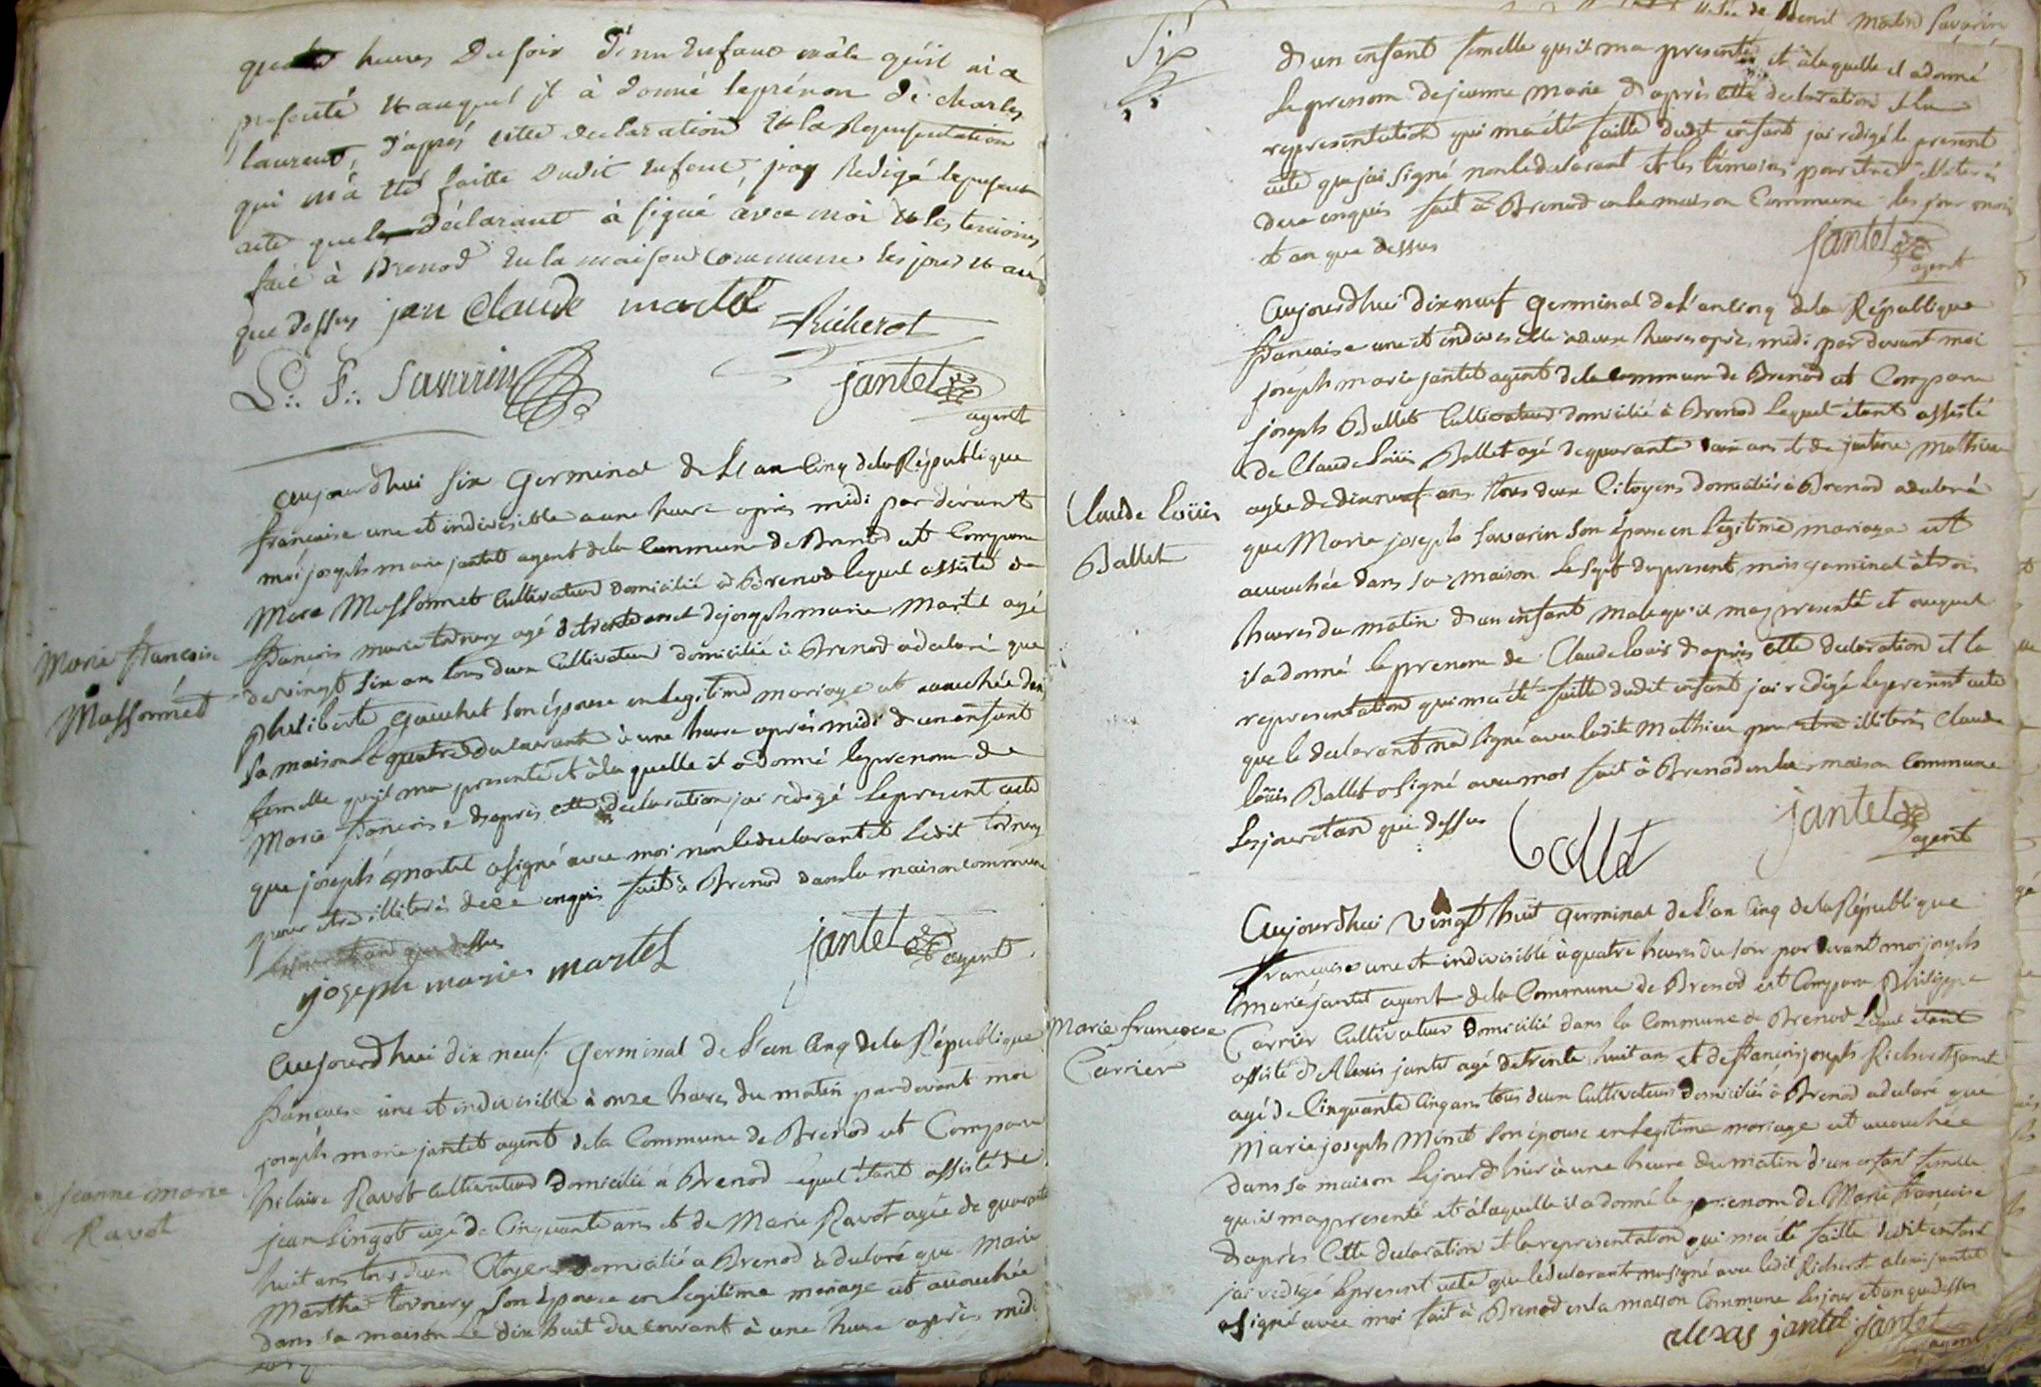 quatre heures du soir d'un enfant mâle qu'il m'a
presenté et auquel il à donné le prénom de charles
laurent, d'aprés cette declaration et la Representation
qui m'à été faitte dudit enfent, j'ay Redigé le present
acte que le déclarant à signé avec moi et les temoins
fait à Brenod en la maison commune les jour et an
que dessus jean Claude martel
Richerot
L: F: Savarin
jantet
agent
aujourdhui six Germinal de l'an Cinq de la République
française une et indivisible a une heure après midi par devant
moi joseph marie jantet agent de la Commune de Brenod est Comparu
Marc Massonnet Cultivateur domicilié à Brenod lequel assisté de
françois marie tornery agé de trente ans et de joseph marie Martel agé
de vingt six ans tous deux Cultivateur domicilié à Brenod a déclaré que
Philiberte Gauchet son épouse en legitime mariage est accouchée dans
Marie françoise
Massonnet
sa maison le quatre du courant à une heure après midi d'un enfant
femelle qu'il ma presenté et à la quelle il a donné le prenom de
Marie françoise d'après cette declaration jai redigé le present acte
que joseph martel a signé avec moi non le declarant et ledit tornery
pour etre illiterés de ce enquis fait à Brenod dans la maison commune
les jour et an que dessus
joseph marie martel
jantet
agent
Aujourdhui dix neuf Germinal de l'an Cinq de la République
française une et indivisible à onze heures du matin par devant moi
joseph marie jantet agent de la Commune de Brenod est Comparu
hilaire Ravot Cultivateur domicilié à Brenod lequel étant assisté de
Jeanne marie
Ravot
jean Lingot agé de Cinquante ans et de Marie Ravot agée de quarante
huit ans tous deux Citoyens domiciliés a Brenod à declaré que Marie
Marthe tornery son épouse en legitime mariage est accouchée
dans sa maison le dix huit du courant à une heure après midi
Six
d'un enfant femelle qu'il ma presenté et à laquelle il a donné
le prenom de jeanne marie d'après cette declaration et la
representation qui m'a été faitte dudit enfant jai redigé le present
acte que jai signé non le declarant et les témoins pour etre illeterés
de ce enquis fait à Brenod en la maison Commune les jour mois
et an que dessus
jantet
agent
Aujourdhui dix neuf Germinal de l'an Cinq de la République
française une et indivisible à deux heures après midi par devant moi
joseph marie jantet agent de la commune de Brenod est Comparu
joseph Ballet Cultivateur domicilié à Brenod lequel étant assisté
de Claude Loüis Ballet agé de quarante ans et de justine Mathieu
agée de dix neuf ans tous deux Citoyens domiciliés à Brenod a declaré
Claude Loüis
Ballet
que Marie joseph Savarin son épouse en légitime mariage est
accouchée dans sa maison le sept du present mois germinal à trois
heures du matin d'un enfant male qu'il ma presenté et auquel
il a donné le prenom de Claude Louis d'après cette declaration et la
representation qui m'a été faitte dudit enfant jai redigé le present acte
que le declarant n'a signé avec ladite Mathieu pour etre illiterés Claude
Loüis Ballet a signé avec moi fait à Brenod en la maison Commune
les jour et an que dessus
Ballet
jantet
agent
Aujourdhui vingt huit Germinal de l'an Cinq de la République
française une et indivisible à quatre heures du soir par devant moi joseph
marie jantet agent de la Commune de Brenod est Comparu Philippe
Carrier Cultivateur domicilié dans la Commune de Brenod lequel étant
Marie françoise
Carrier
assisté d'Alexis jantet agé de trente huit ans et de françois joseph Richerot
agé de Cinquante Cinq ans tous deux Cultivateurs domiciliés à Brenod a declaré que
Marie joseph Minet son épouse en legitime mariage est accouchée
dans sa maison le jour d'hier à une heure du matin d'un enfant femelle
qu'il ma presenté et à laquelle il a donné le prenom de Marie françoise
d'après Cette declaration et la representation qui m'a été faitte dudit enfant
jai redigé le present acte que le declarant na signé avec ledit Richerot alexis jantet
a signé avec moi fait à Brenod en la maison Commune les jour et an que dessus
alexis jantet jantet
agent